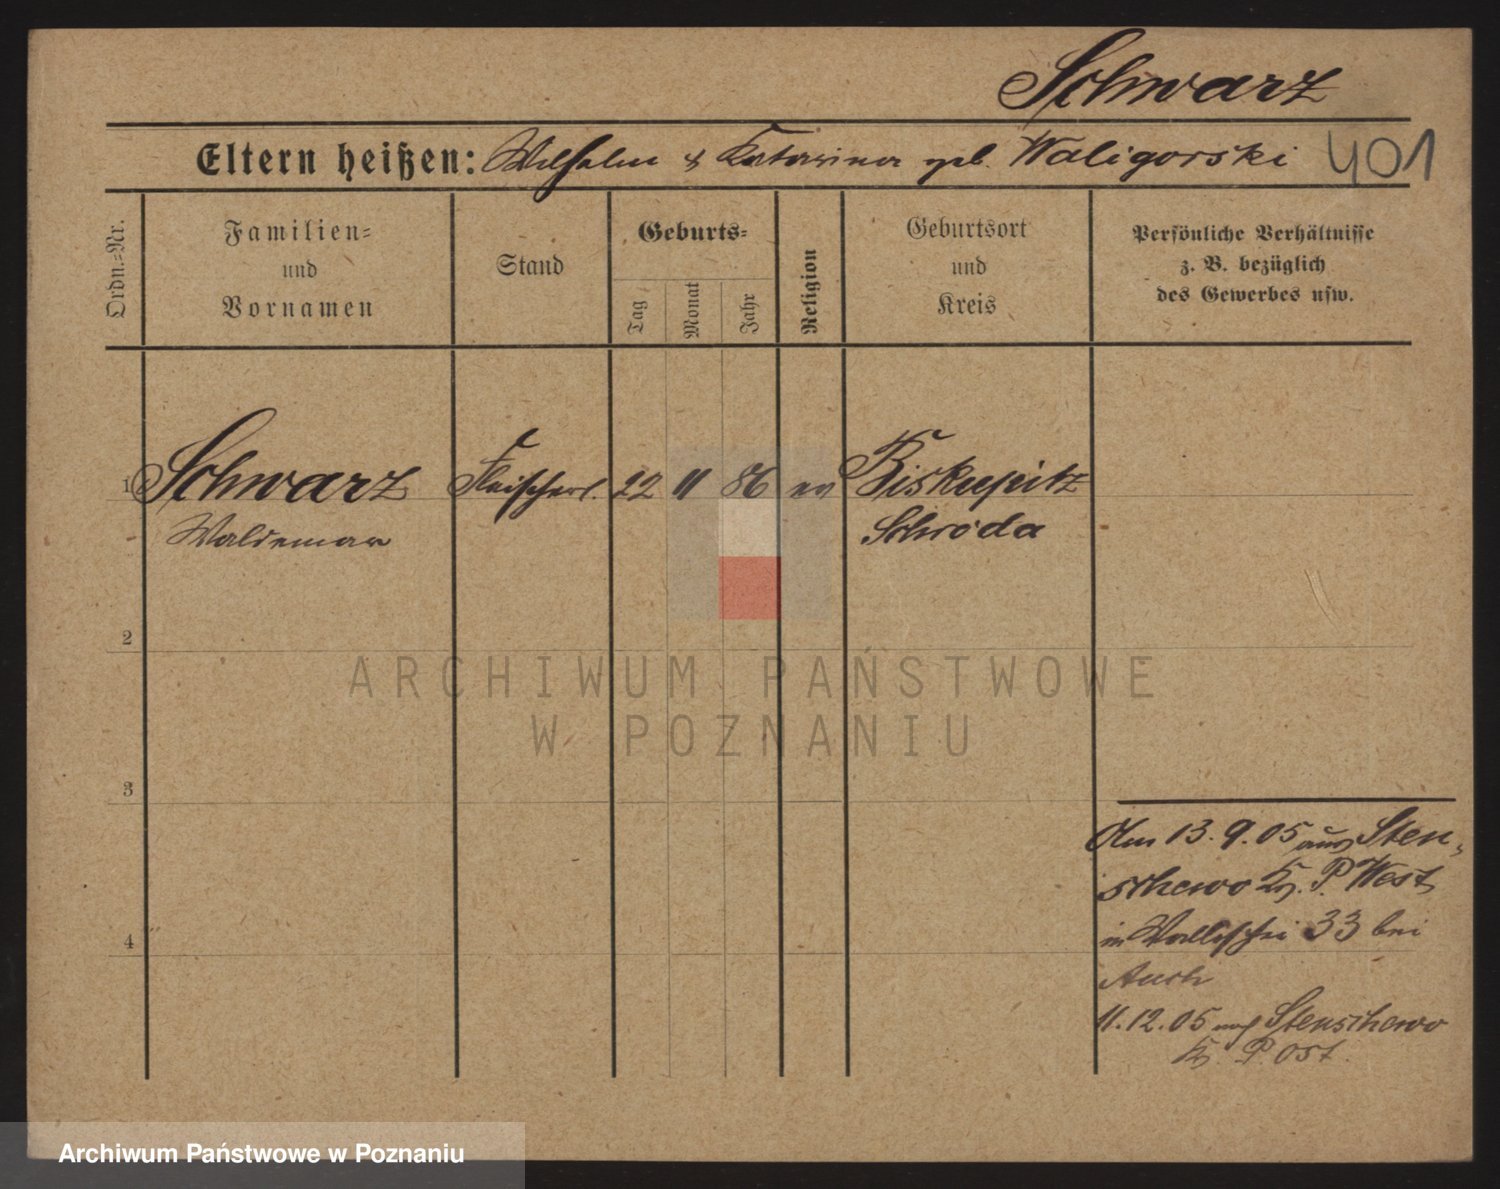 Schwarz
Eltern heißen: Wilhelm & Katarina geb. Waligorski 401
Ordn.=Nr.
Familien=
und
Vornamen
Stand
Geburts=
Tag
Monat
Jahr
Religion
Geburtsort
und
Kreis
Persönliche Verhältnisse
z. B. bezüglich
des Gewerbes usw.
1 Schwarz Fleischerl. 22 11 86 ev Biskupitz
Waldemar Schroda
2
3
4
Am 13.9.05 aus Sten-
schewo Kr. P. West
in Wallischei 33 bei
11.12.05 nach Stenschewo
Kr. P. Ost.
ARCHIWUM PAŃSTWOWE
W POZNANIU
Archiwum Państwowe w Poznaniu